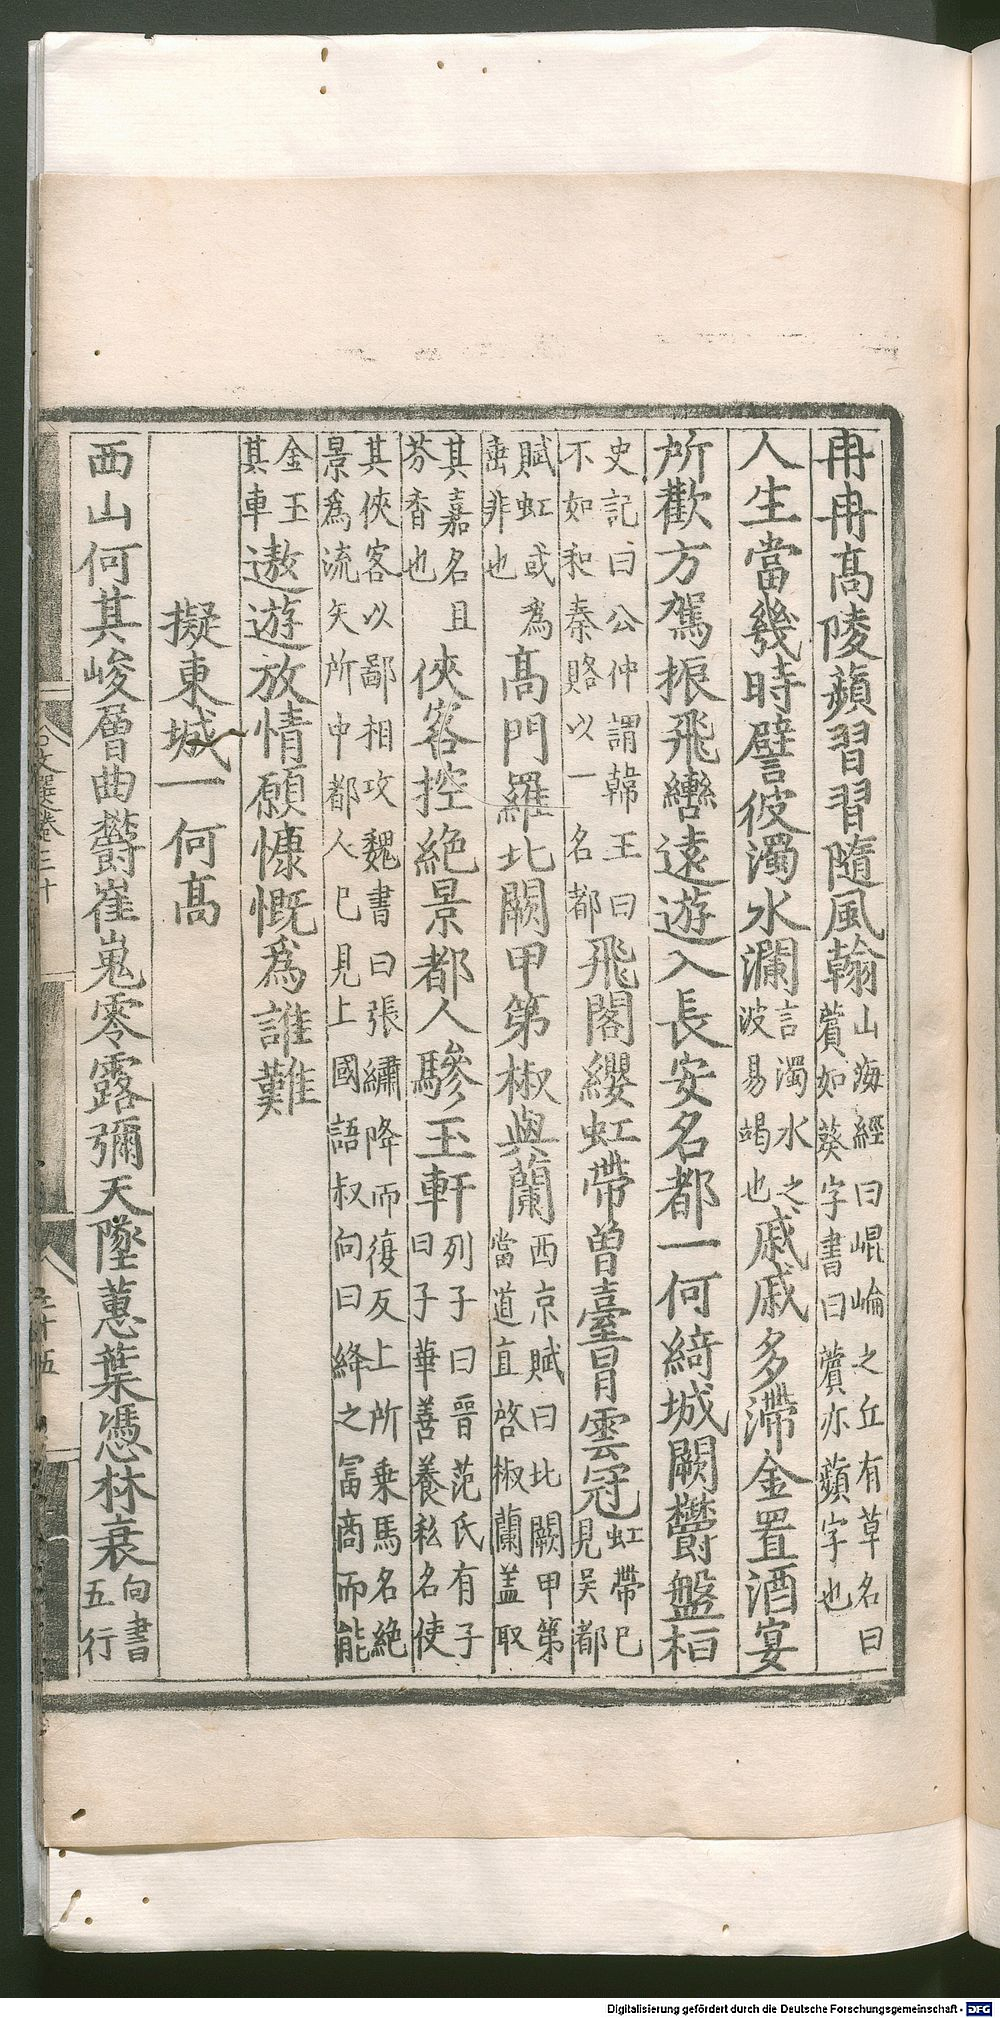 冉冉高陵蘋習習隨風翰山海經曰崐崘之丘有草名曰薲如葵字書曰薲亦蘋字也
人生當幾時譬彼濁水瀾言濁水之波易竭也戚戚多滯念置酒宴
所歡方駕振飛轡遠遊入長安名都一何綺城闕鬱盤桓
史記曰公仲謂韓王曰不如和秦賂以一名都飛閣纓虹帶曾臺冒雲冠虹帶已見吴都
賦虹或為垂非也高門羅北闕甲第椒與蘭西京賦曰北闕甲第當道直啓椒蘭蓋取
其嘉名且芬香也俠客控絕景都人驂玉軒列子曰晉范氏有子曰子華善養私名使
其俠客以鄙相攻魏書曰張繡降而復反上所乗馬名絕景為流矢所中都人已見上國語叔向曰絳之冨商而能
金玉其車遨遊放情願慷慨為誰難
擬東城一何高
西山何其峻層曲鬱崔嵬零露彌天墜蕙葉憑林衰向書五行
卷三十
Digitalisierung gefördert durch die Deutsche Forschungsgemeinschaft - DFG